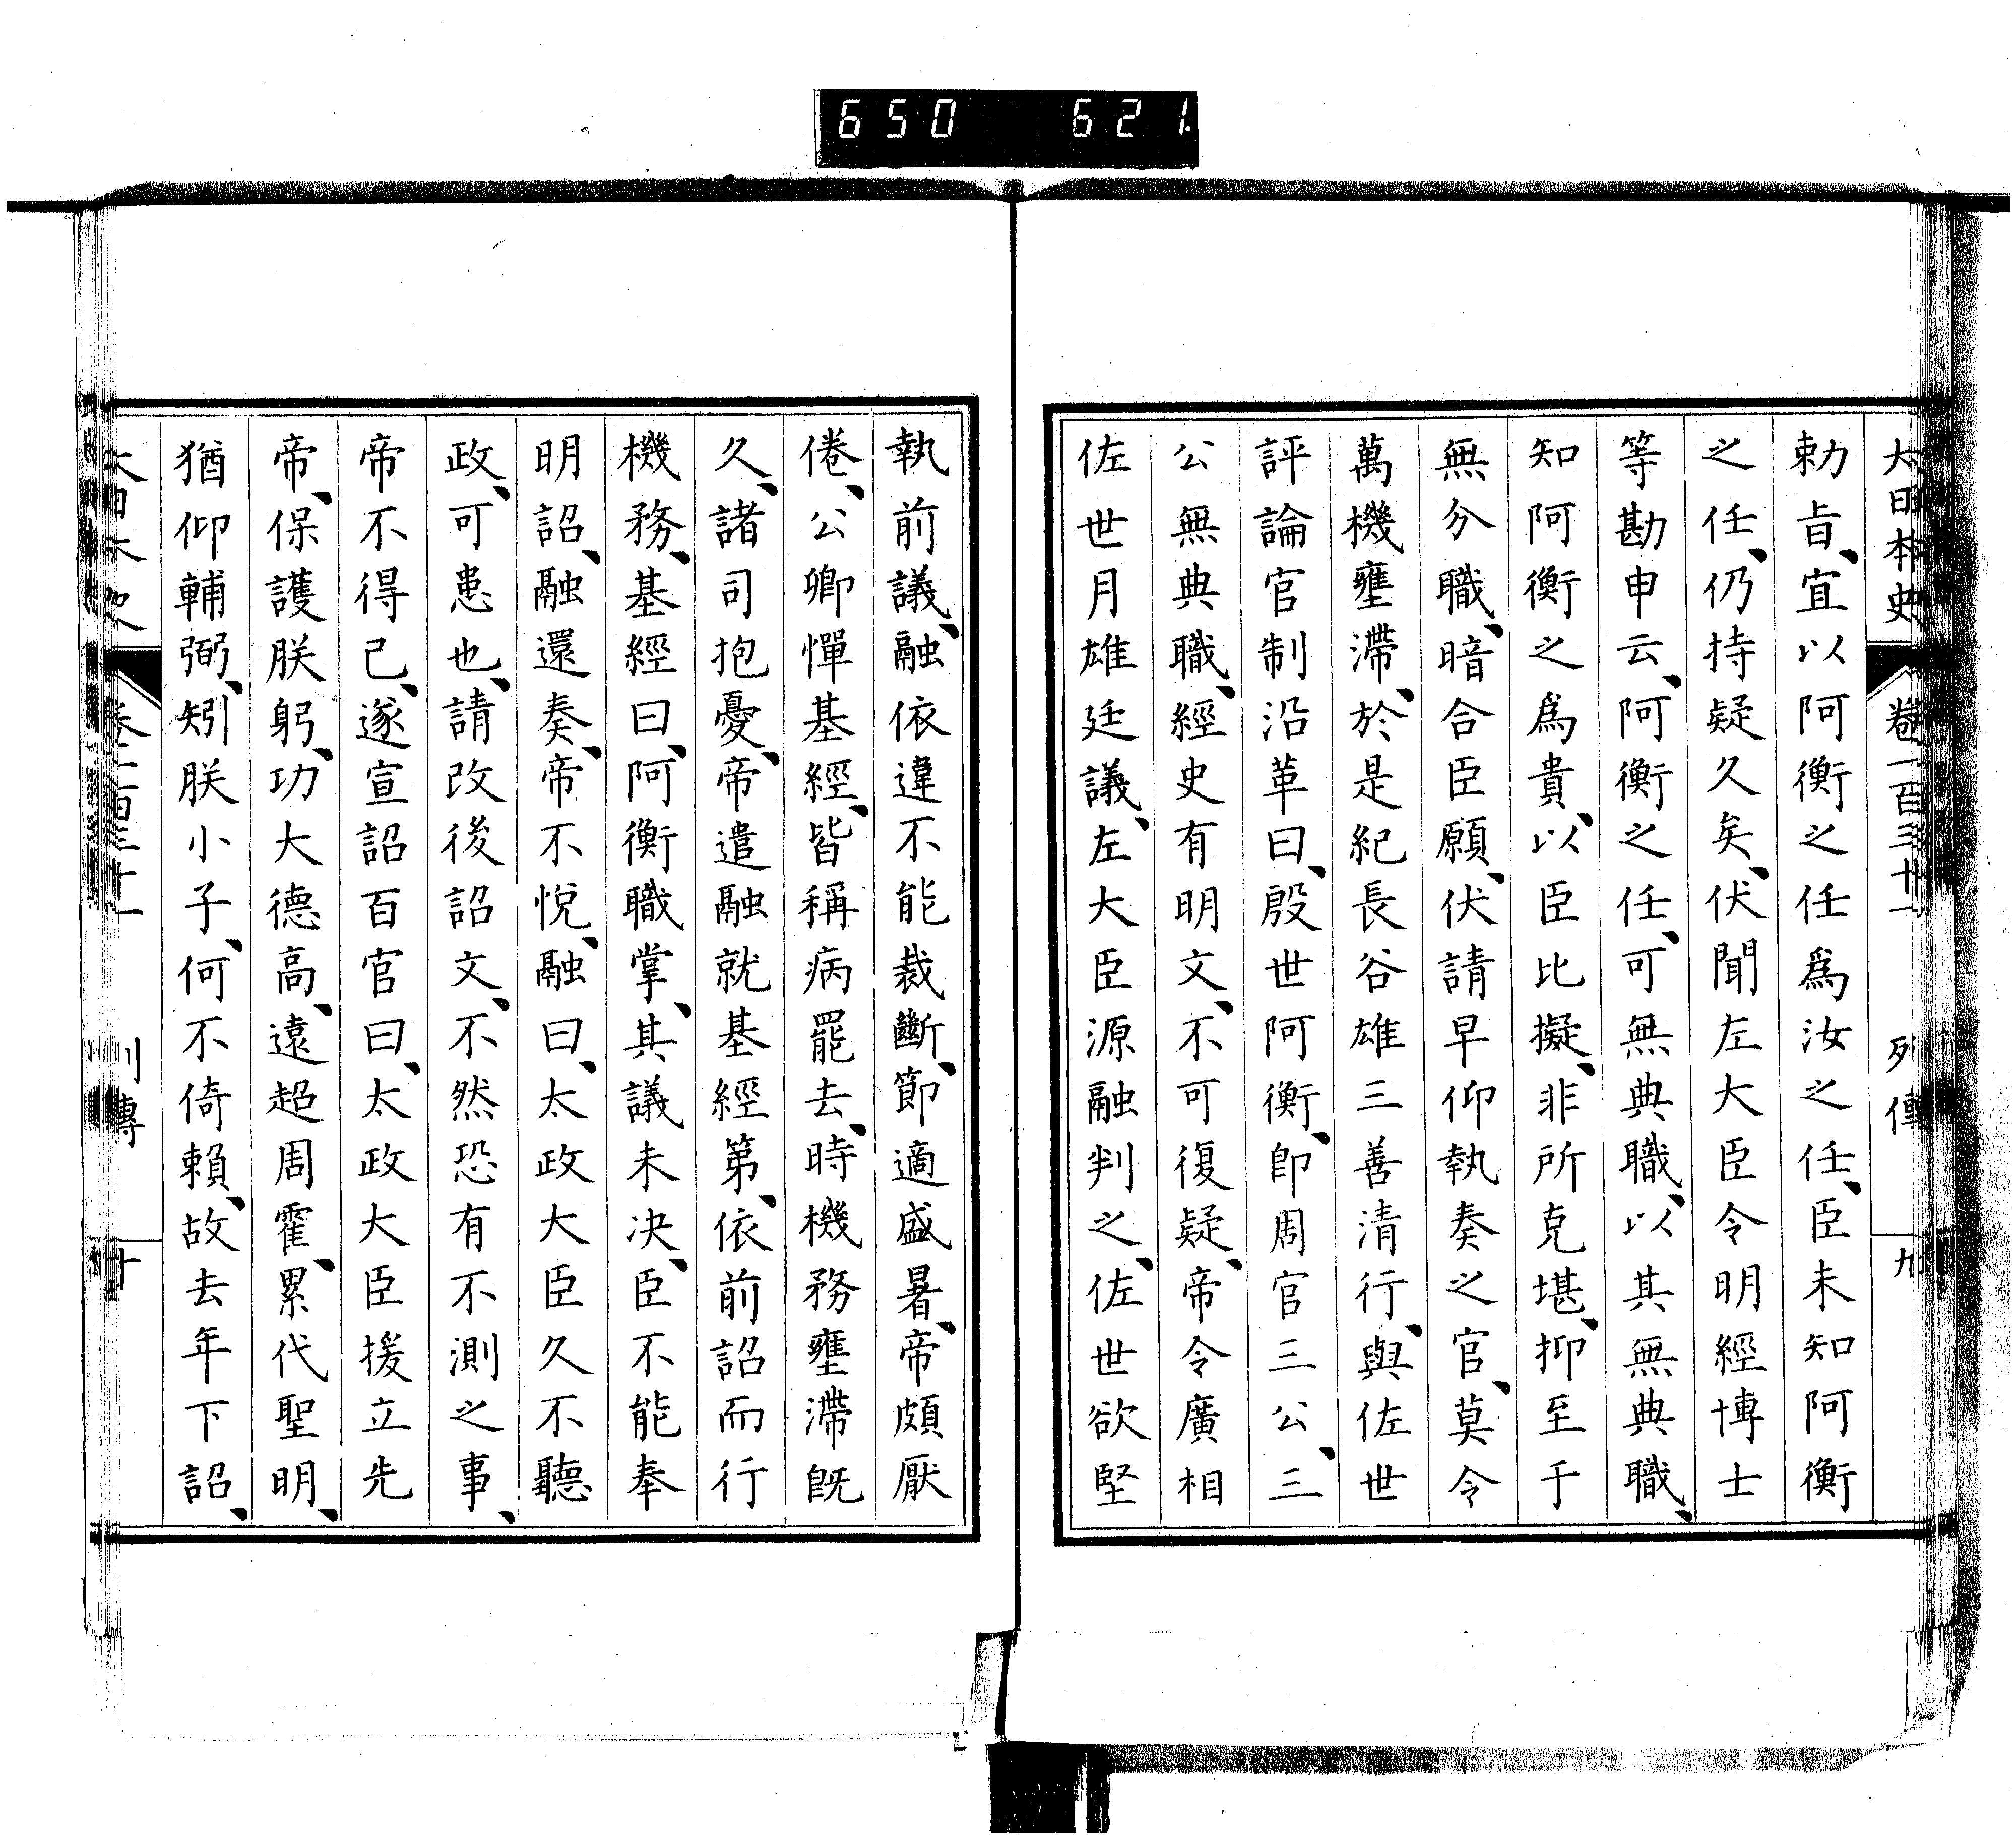 650 621.
大日本史 卷一百三十一 列傳 九
勅旨、宜以阿衡之任爲汝之任、臣未知阿衡
之任、仍持疑久矣、伏聞左大臣令明經博士
等勘申云、阿衡之任、可無典職、以其無典職、
知阿衡之爲貴、以臣比擬、非所克堪、抑至于
無分職、暗合臣願、伏請早仰執奏之官、莫令
萬機壅滯、於是紀長谷雄三善清行、與佐世
評論官制沿革曰、殷世阿衡、卽周官三公、三
公無典職、經史有明文、不可復疑、帝令廣相
佐世月雄廷議、左大臣源融判之、佐世欲堅
執前議、融依違不能裁斷、節適盛暑、帝頗厭
倦、公卿憚基經、皆稱病罷去、時機務壅滯旣
久、諸司抱憂、帝遣融就基經第、依前詔而行
機務、基經曰、阿衡職掌、其議未决、臣不能奉
明詔、融還奏、帝不悅、融曰、太政大臣久不聽
政、可患也、請改後詔文、不然恐有不測之事、
帝不得已、遂宣詔百官曰、太政大臣援立先
帝、保護朕躬、功大德高、遠超周霍、累代聖明、
猶仰輔弼、矧朕小子、何不倚賴、故去年下詔、
大日本史 卷一百三十一 列傳 十